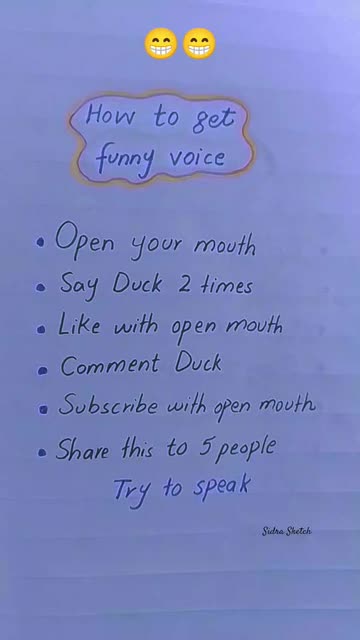 How to get
funny voice
• Open your mouth
• Say Duck 2 times
• Like with open mouth
• Comment Duck
• Subscribe with open mouth
• Share this to 5 people
Try to speak
Sidra Sketch